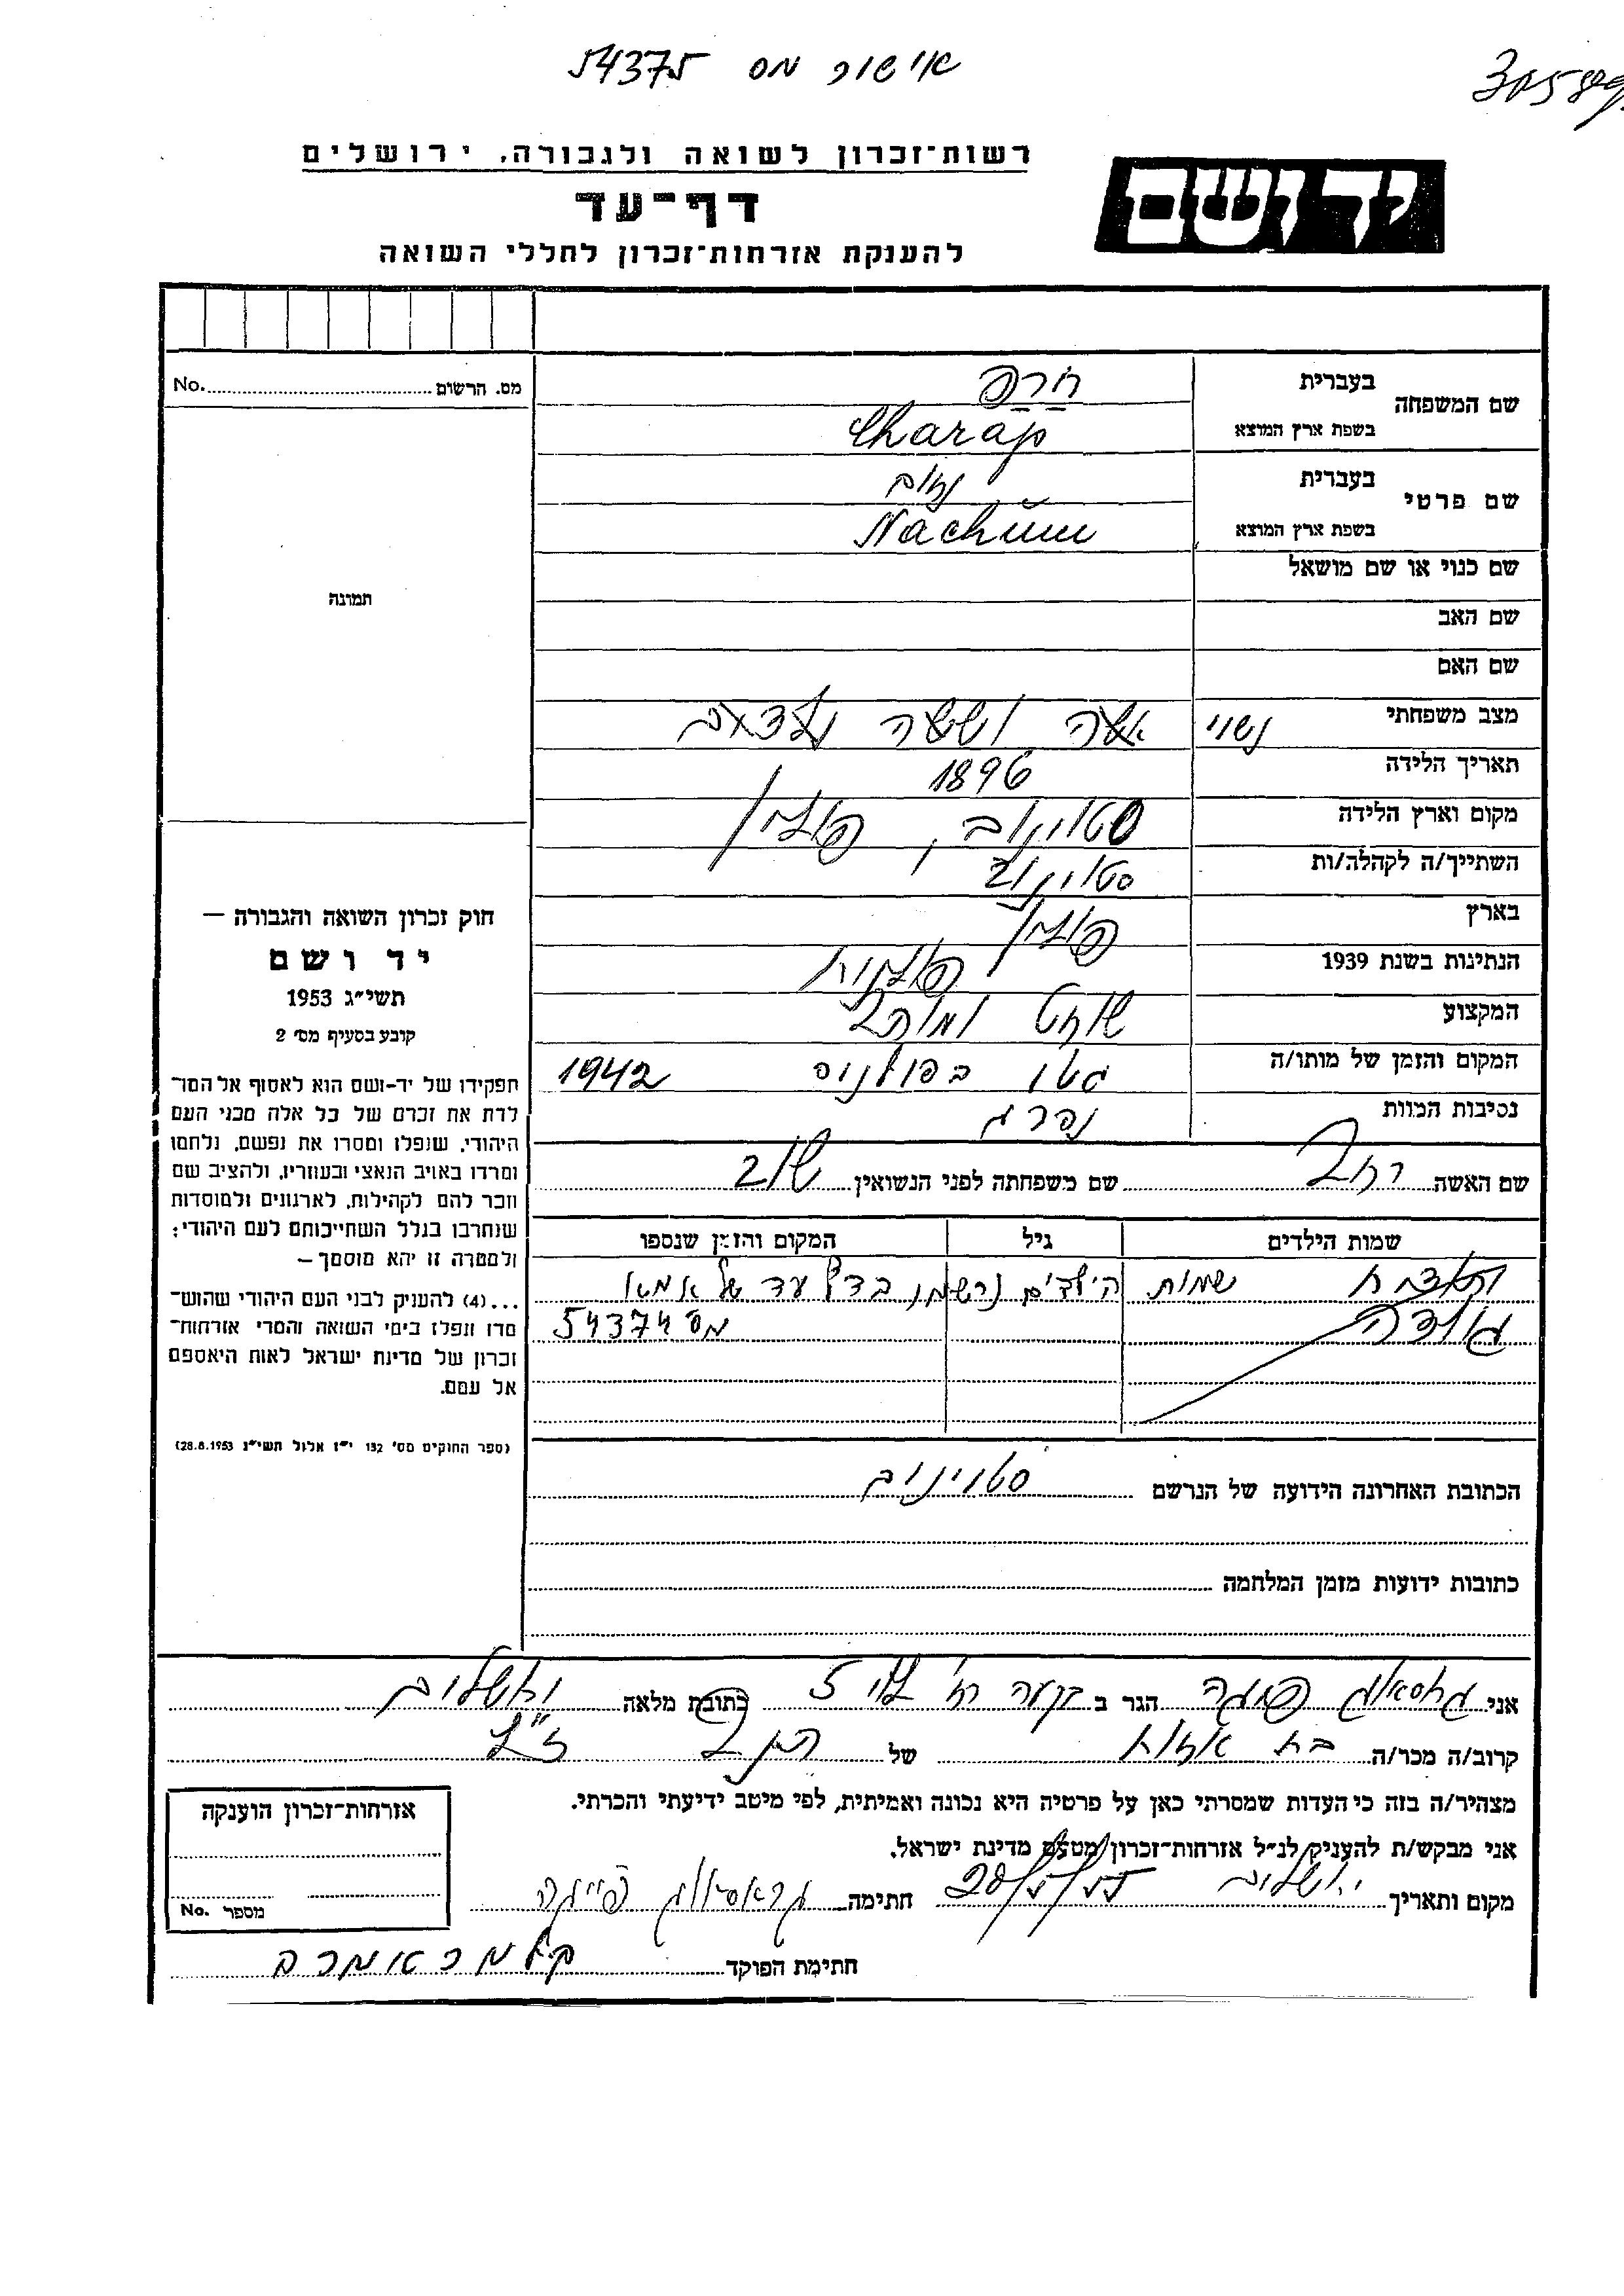 אישור מס 54375
רשות־זכרון לשואה ולגבורה, ירושלים
יד ושם
דף־עד
להענקת אזרחות־זכרון לחללי השואה
מס. הרשום No.
שם המשפחה
בעברית חרפ
בשפת ארץ המוצא Charap
שם פרטי
בעברית נחום
בשפת ארץ המוצא Nachum
תמונה
שם כנוי או שם מושאל
שם האב
שם האם
מצב משפחתי נשוי אשה וששה ילדים
תאריך הלידה 1896
מקום וארץ הלידה סטוינוב, פולין
השתייך/ה לקהלה/ות סטוינוב
בארץ פולין
הנתינות בשנת 1939 פולנית
המקצוע שוחט ומוהל
המקום והזמן של מותו/ה גטו בפולניה 1942
נסיבות המוות נהרג
שם האשה רחל שם משפחתה לפני הנשואין
חוק זכרון השואה והגבורה —
יד ושם
תשי״ג 1953
קובע בסעיף מס׳ 2
תפקידו של יד-ושם הוא לאסוף אל המו־
לדת את זכרם של כל אלה מבני העם
היהודי, שנפלו ומסרו את נפשם, נלחמו
ומרדו באויב הנאצי ובעוזריו, ולהציב שם
וזכר להם לקהילות, לארגונים ולמוסדות
שנחרבו בגלל השתייכותם לעם היהודי;
ולמטרה זו יהא מוסמך —
...(4) להעניק לבני העם היהודי שהוש־
מדו ונפלו בימי השואה והמרי אזרחות־
זכרון של מדינת ישראל לאות היאספם
אל עמם.
(ספר החוקים מס׳ 132 י״ז אלול תשי״ג 28.8.1953)
שמות הילדים גיל המקום והזמן שנספו
שמות הילדים נרשמו בדף עד של אמא
מס 54374
הכתובת האחרונה הידועה של הנרשם סטוינוב
כתובות ידועות מזמן המלחמה
אני הגר ב 5 כתובת מלאה ירושלים
קרוב/ה מכר/ה בת אחות של הנ"ל ז"ל
מצהיר/ה בזה כי העדות שמסרתי כאן על פרטיה היא נכונה ואמיתית, לפי מיטב ידיעתי והכרתי.
אני מבקש/ת להעניק לנ״ל אזרחות־זכרון מטעם מדינת ישראל.
מקום ותאריך ירושלים חתימה
חתימת הפוקד
אזרחות־זכרון הוענקה
מספר No.